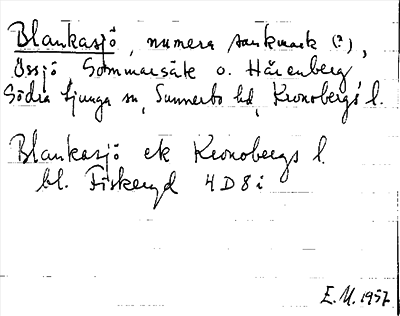 Blankasjö, numera sankmark (?),
Össjö, Sommarsäte o. Hårenberg
Södra Ljunga sn, Sunnerbo hd, Kronobergs l.
Blankasjö ek Kronobergs l.
bl. Fiskeryd 4D8i
E.M. 1957